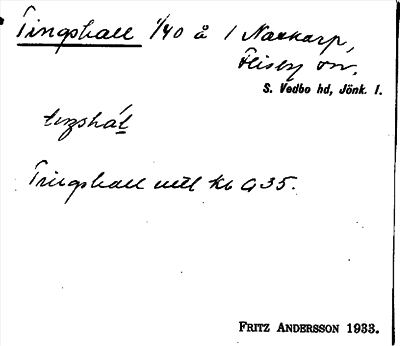 Tingshall 1/40 å 1 Narkarp,
Flisby sn.
S. Vedbo hd, Jönk. l.
Tingshall mtl kb G 35.
FRITZ ANDERSSON 1933.